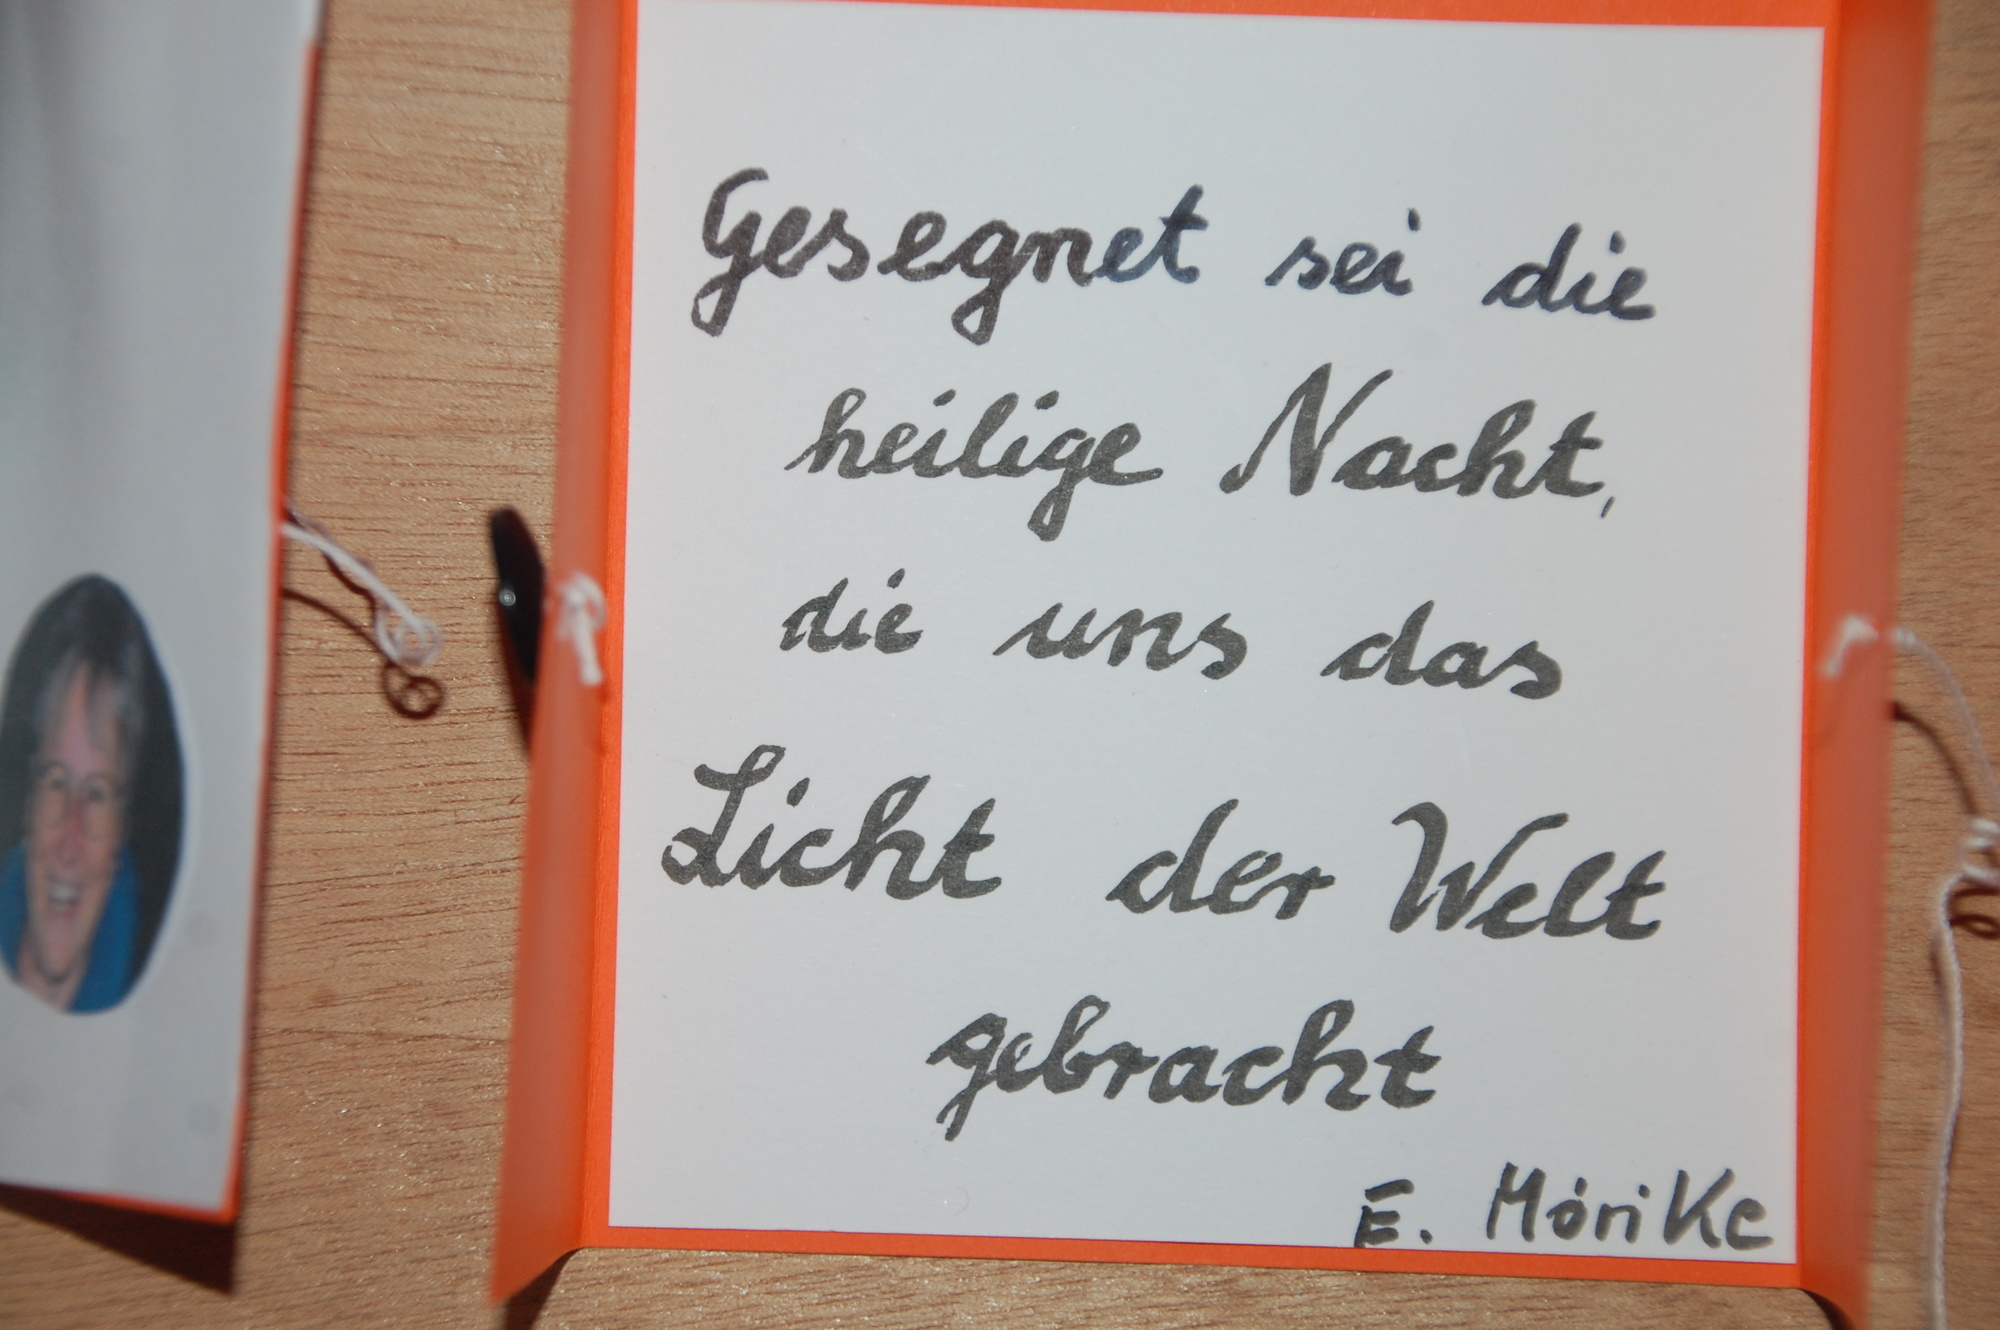 Gesegnet sei die
heilige Nacht,
die uns das
Licht der Welt
gebracht
E. Mörike